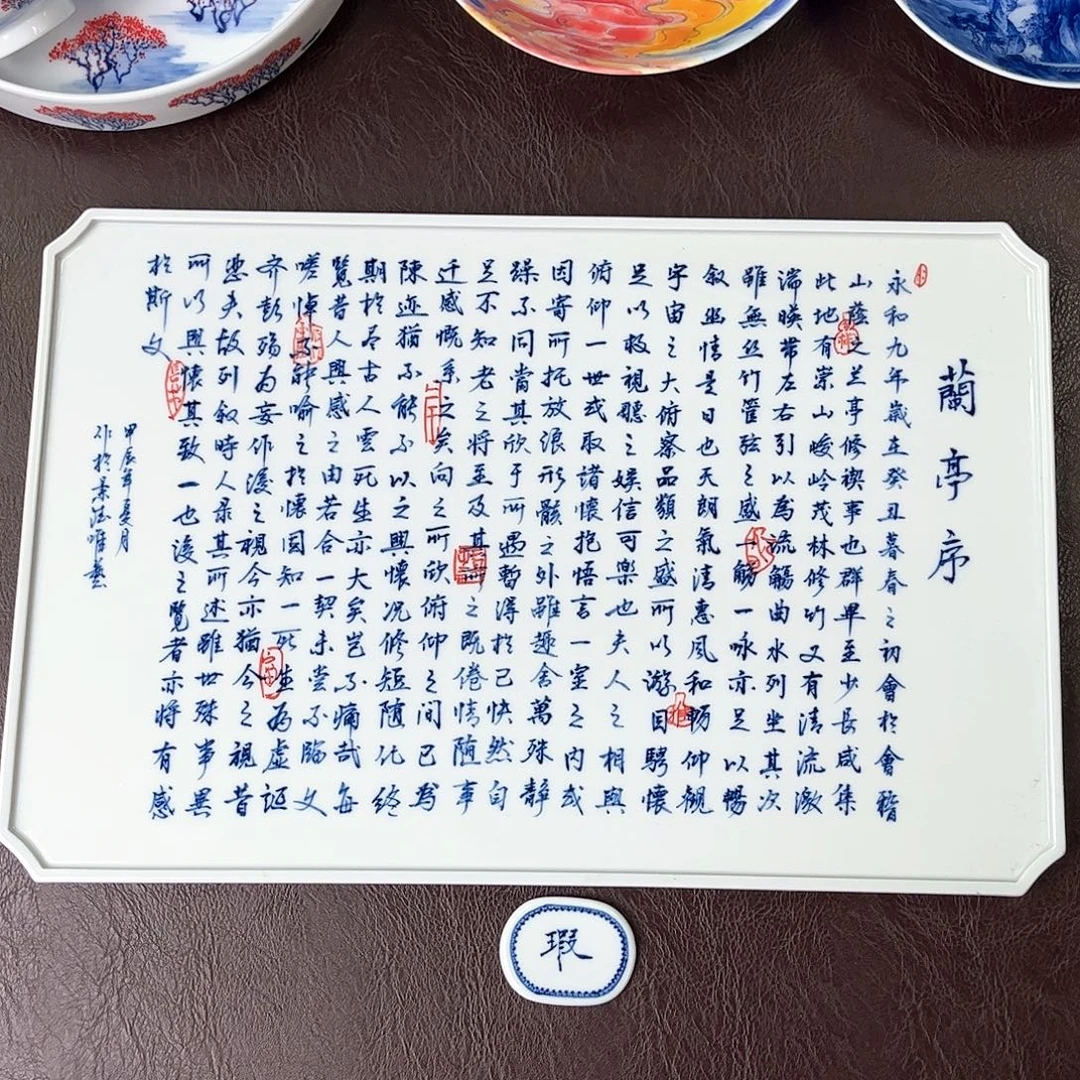 蘭亭序
永和九年歲在癸丑暮春之初會於會稽
山蔭之兰亭修禊事也群畢至少長咸集
此地有崇山峻岭茂林修竹又有清流激
湍暎带左右引以為流觴曲水列坐其次
雖無丝竹管弦之盛一觴一咏亦足以暢
叙幽情是日也天朗氣清惠風和畅仰觀
宇宙之大俯察品類之盛所以游目騁懷
足以极視聽之娱信可樂也夫人之相與
俯仰一世或取諸懷抱悟言一室之内或
因寄所托放浪形骸之外雖趣舍萬殊静
躁不同當其欣于所遇暫得於己快然自
足不知老之将至及其所之既倦情随事
迁感慨系之矣向之所欣俯仰之间已为
陳迹猶不能不以之興懷况修短随化终
期於尽古人雲死生亦大矣岂不痛哉每
覽昔人興感之由若合一契未尝不臨文
嗟悼不能喻之於懷固知一死生为虚诞
齐彭殇为妄作後之視今亦猶今之視昔
悲夫故列叙時人录其所述雖世殊事異
所以興懷其致一也後之覽者亦将有感
於斯文
甲辰年夏月
作於景德唯藝
瑕